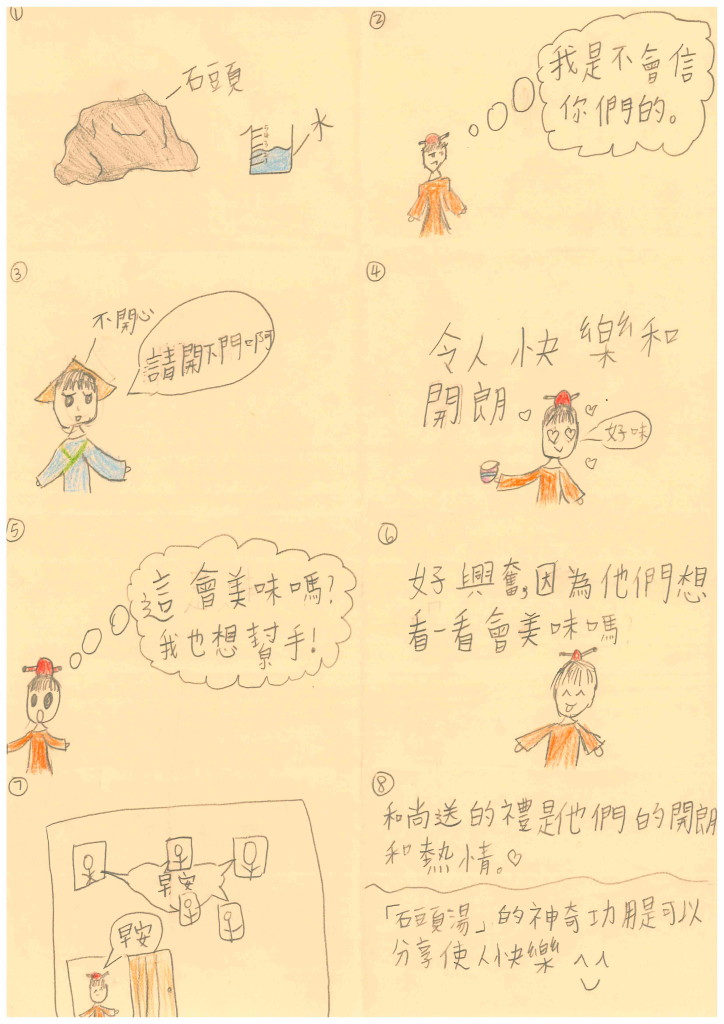 ①
石頭
水
②
我是不會信
你們的。
③
不開心
請開下門啊
④
令人快樂和
開朗
好味
⑤
這會美味嗎?
我也想幫手!
⑥
好興奮,因為他們想
看一看會美味嗎?
⑦
早安
早安
⑧
和尚送的禮是他們的開朗
和熱情。♡
「石頭湯」的神奇功用是可以
分享使人快樂